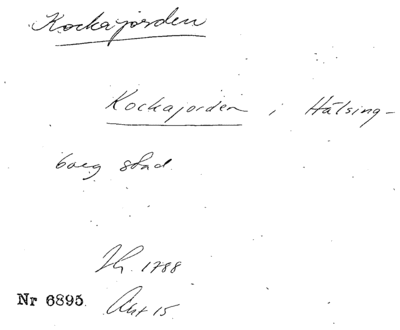 Kockajorden
Kockajorden i Hälsing-
borg stad
Jh. 1788
Nr 6895. Akt 15.